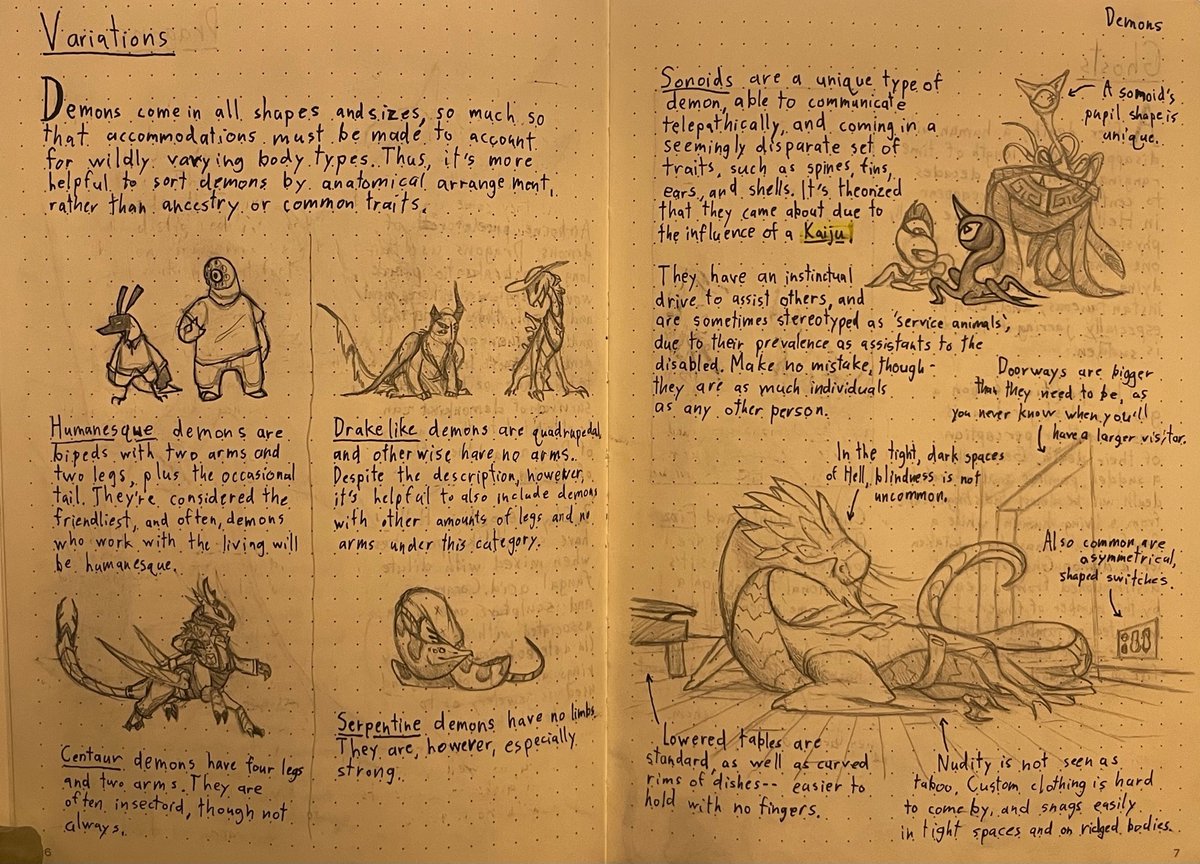 Variations
Demons come in all shapes and sizes, so much so
that accommodations must be made to account
for wildly varying body types. Thus, it's more
helpful to sort demons by anatomical arrangement,
rather than ancestry or common traits.
Humanesque demons are
bipeds with two arms and
two legs, plus the occasional
tail. They're considered the
friendliest, and often, demons
who work with the living will
be humanesque.
Drakelike demons are quadrupedal
and otherwise have no arms.
Despite the description, however,
it's helpful to also include demons
with other amounts of legs and no
arms under this category.
Centaur demons have four legs
and two arms. They are
often insectoid, though not
always.
Serpentine demons have no limbs.
They are, however, especially
strong.
6
Demons
Sonoids are a unique type of
demon, able to communicate
telepathically, and coming in a
seemingly disparate set of
traits, such as spines, fins,
ears, and shells. It's theorized
that they came about due to
the influence of a Kaiju
A somoid's
pupil shape is
unique.
They have an instinctual
drive to assist others, and
are sometimes stereotyped as 'service animals',
due to their prevalence as assistants to the
disabled. Make no mistake, though-
they are as much individuals
as any other person.
Doorways are bigger
that they need to be, as
you never know when you'll
have a larger visitor.
In the tight, dark spaces
of Hell, blindness is not
uncommon.
Also common are
asymmetrical,
shaped switches.
Lowered tables are
standard, as well as curved
rims of dishes-- easier to
hold with no fingers.
Nudity is not seen as
taboo. Custom clothing is hard
to come by, and snags easily
in tight spaces and on ridged bodies.
7